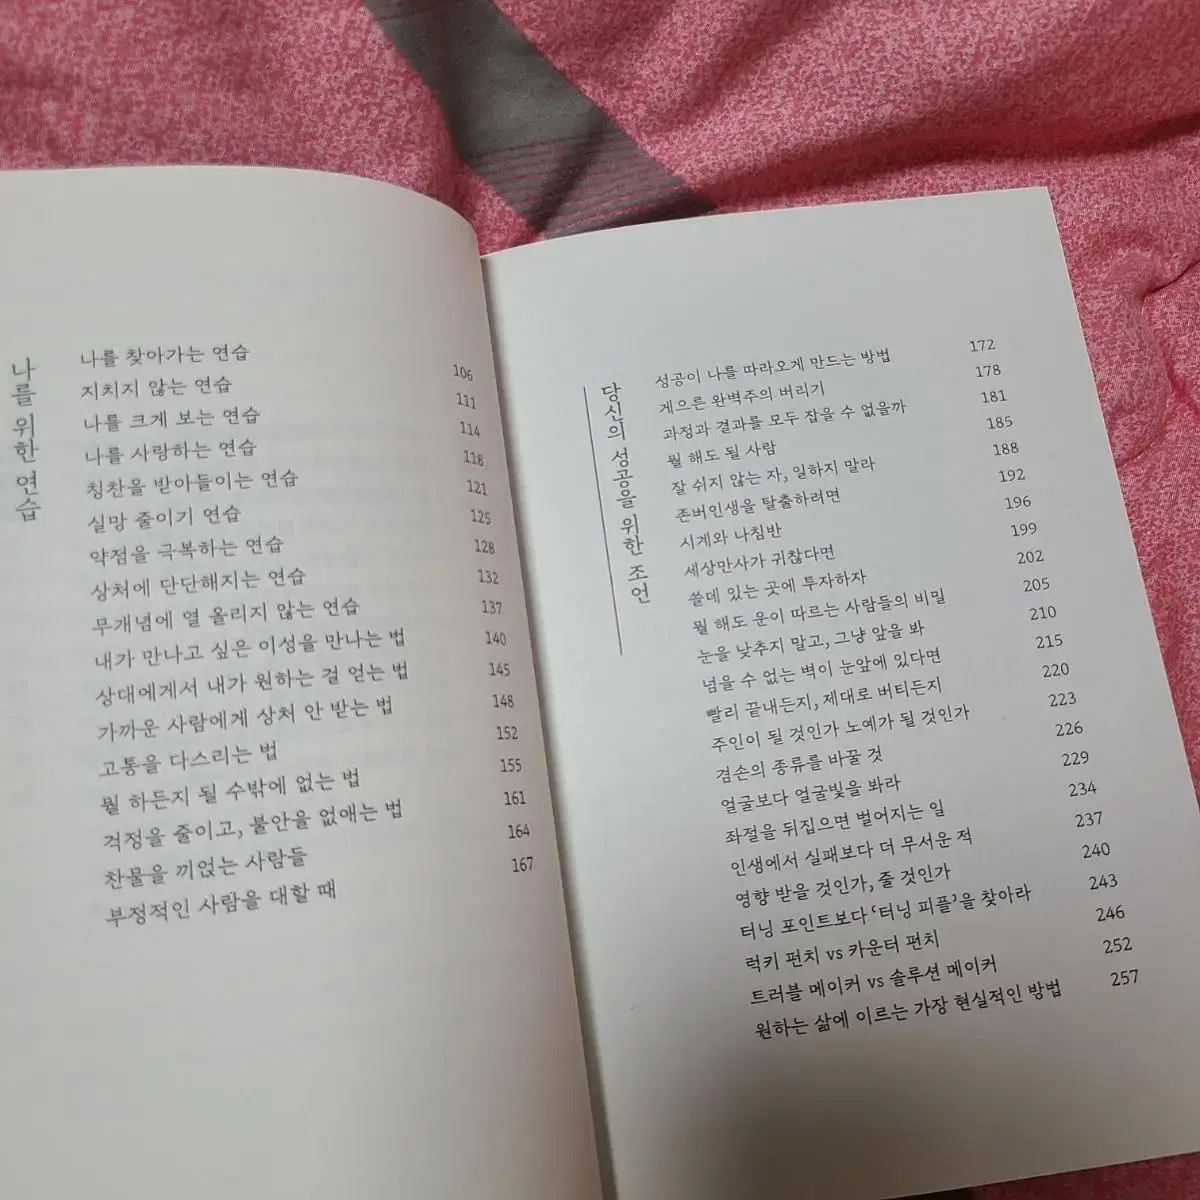 나를 위한 연습
나를 찾아가는 연습 106
지치지 않는 연습 111
나를 크게 보는 연습 114
나를 사랑하는 연습 118
칭찬을 받아들이는 연습 121
실망 줄이기 연습 125
약점을 극복하는 연습 128
상처에 단단해지는 연습 132
무개념에 열 올리지 않는 연습 137
내가 만나고 싶은 이성을 만나는 법 140
상대에게서 내가 원하는 걸 얻는 법 145
가까운 사람에게 상처 안 받는 법 148
고통을 다스리는 법 152
뭘 하든지 될 수밖에 없는 법 155
걱정을 줄이고, 불안을 없애는 법 161
찬물을 끼얹는 사람들 164
부정적인 사람을 대할 때 167
당신의 성공을 위한 조언
성공이 나를 따라오게 만드는 방법 172
게으른 완벽주의 버리기 178
과정과 결과를 모두 잡을 수 없을까 181
뭘 해도 될 사람 185
잘 쉬지 않는 자, 일하지 말라 188
존버인생을 탈출하려면 192
시계와 나침반 196
세상만사가 귀찮다면 199
쓸데 있는 곳에 투자하자 202
뭘 해도 운이 따르는 사람들의 비밀 205
눈을 낮추지 말고, 그냥 앞을 봐 210
넘을 수 없는 벽이 눈앞에 있다면 215
빨리 끝내든지, 제대로 버티든지 220
주인이 될 것인가 노예가 될 것인가 223
겸손의 종류를 바꿀 것 226
얼굴보다 얼굴빛을 봐라 229
좌절을 뒤집으면 벌어지는 일 234
인생에서 실패보다 더 무서운 적 237
영향 받을 것인가, 줄 것인가 240
터닝 포인트보다 ‘터닝 피플’을 찾아라 243
럭키 펀치 vs 카운터 펀치 246
트러블 메이커 vs 솔루션 메이커 252
원하는 삶에 이르는 가장 현실적인 방법 257